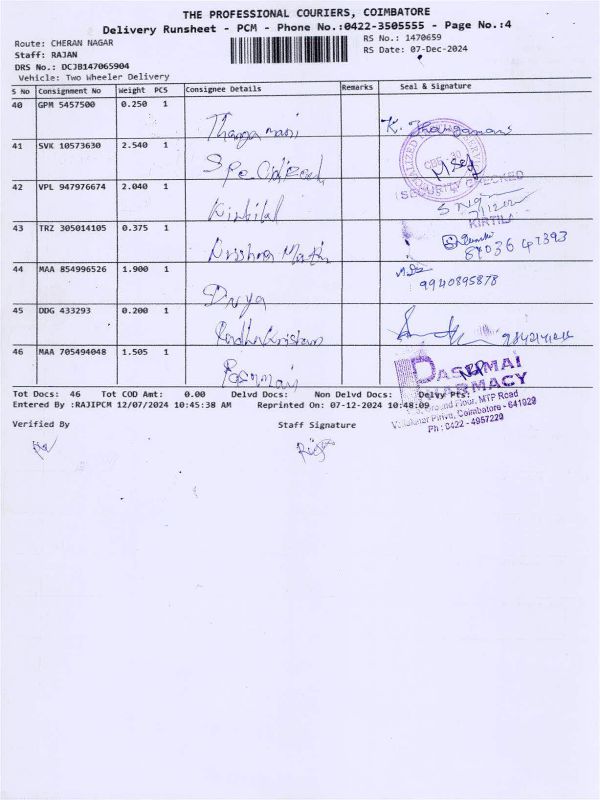 THE PROFESSIONAL COURIERS, COIMBATORE
Delivery Runsheet - PCM - Phone No.:0422-3505555 - Page No.:4
Route: CHERAN NAGAR
RS No.: 1470659
Staff: RAJAN
RS Date: 07-Dec-2024
DRS No.: DCJB147065904
Vehicle: Two Wheeler Delivery
S No Consignment No Weight PCS Consignee Details Remarks Seal & Signature
40 GPM 5457500 0.250 1
Thangamani K. Thangamani
41 SVK 10573630 2.540 1
SECURITY CHECKED
42 VPL 947976674 2.040 1
KIRTILAL
43 TRZ 305014105 0.375 1
Krishna
44 MAA 854996526 1.900 1
9940895878
Divya
45 DDG 433293 0.200 1
Radhakrishnan
46 MAA 705494048 1.505 1
PHARMACY
Ground Floor, MTP Road
Coimbatore - 641029
Ph : 0422 - 4957229
Tot Docs: 46 Tot COD Amt: 0.00 Delvd Docs: Non Delvd Docs: Delvy Pts:
Entered By :RAJIPCM 12/07/2024 10:45:38 AM Reprinted On: 07-12-2024 10:48:09
Verified By Staff Signature